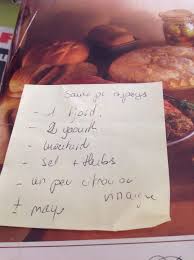 Sauce pr
- 1 fjord.
- 2 yaourt
- moutarde
- sel + herbes
- un peu citron ou
vinaigre
± mayo